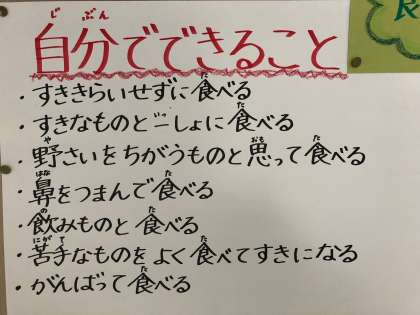 自分でできること
・すききらいせずに食べる
・すきなものといっしょに食べる
・野さいをちがうものと思って食べる
・鼻をつまんで食べる
・飲みものと食べる
・苦手なものをよく食べてすきになる
・がんばって食べる